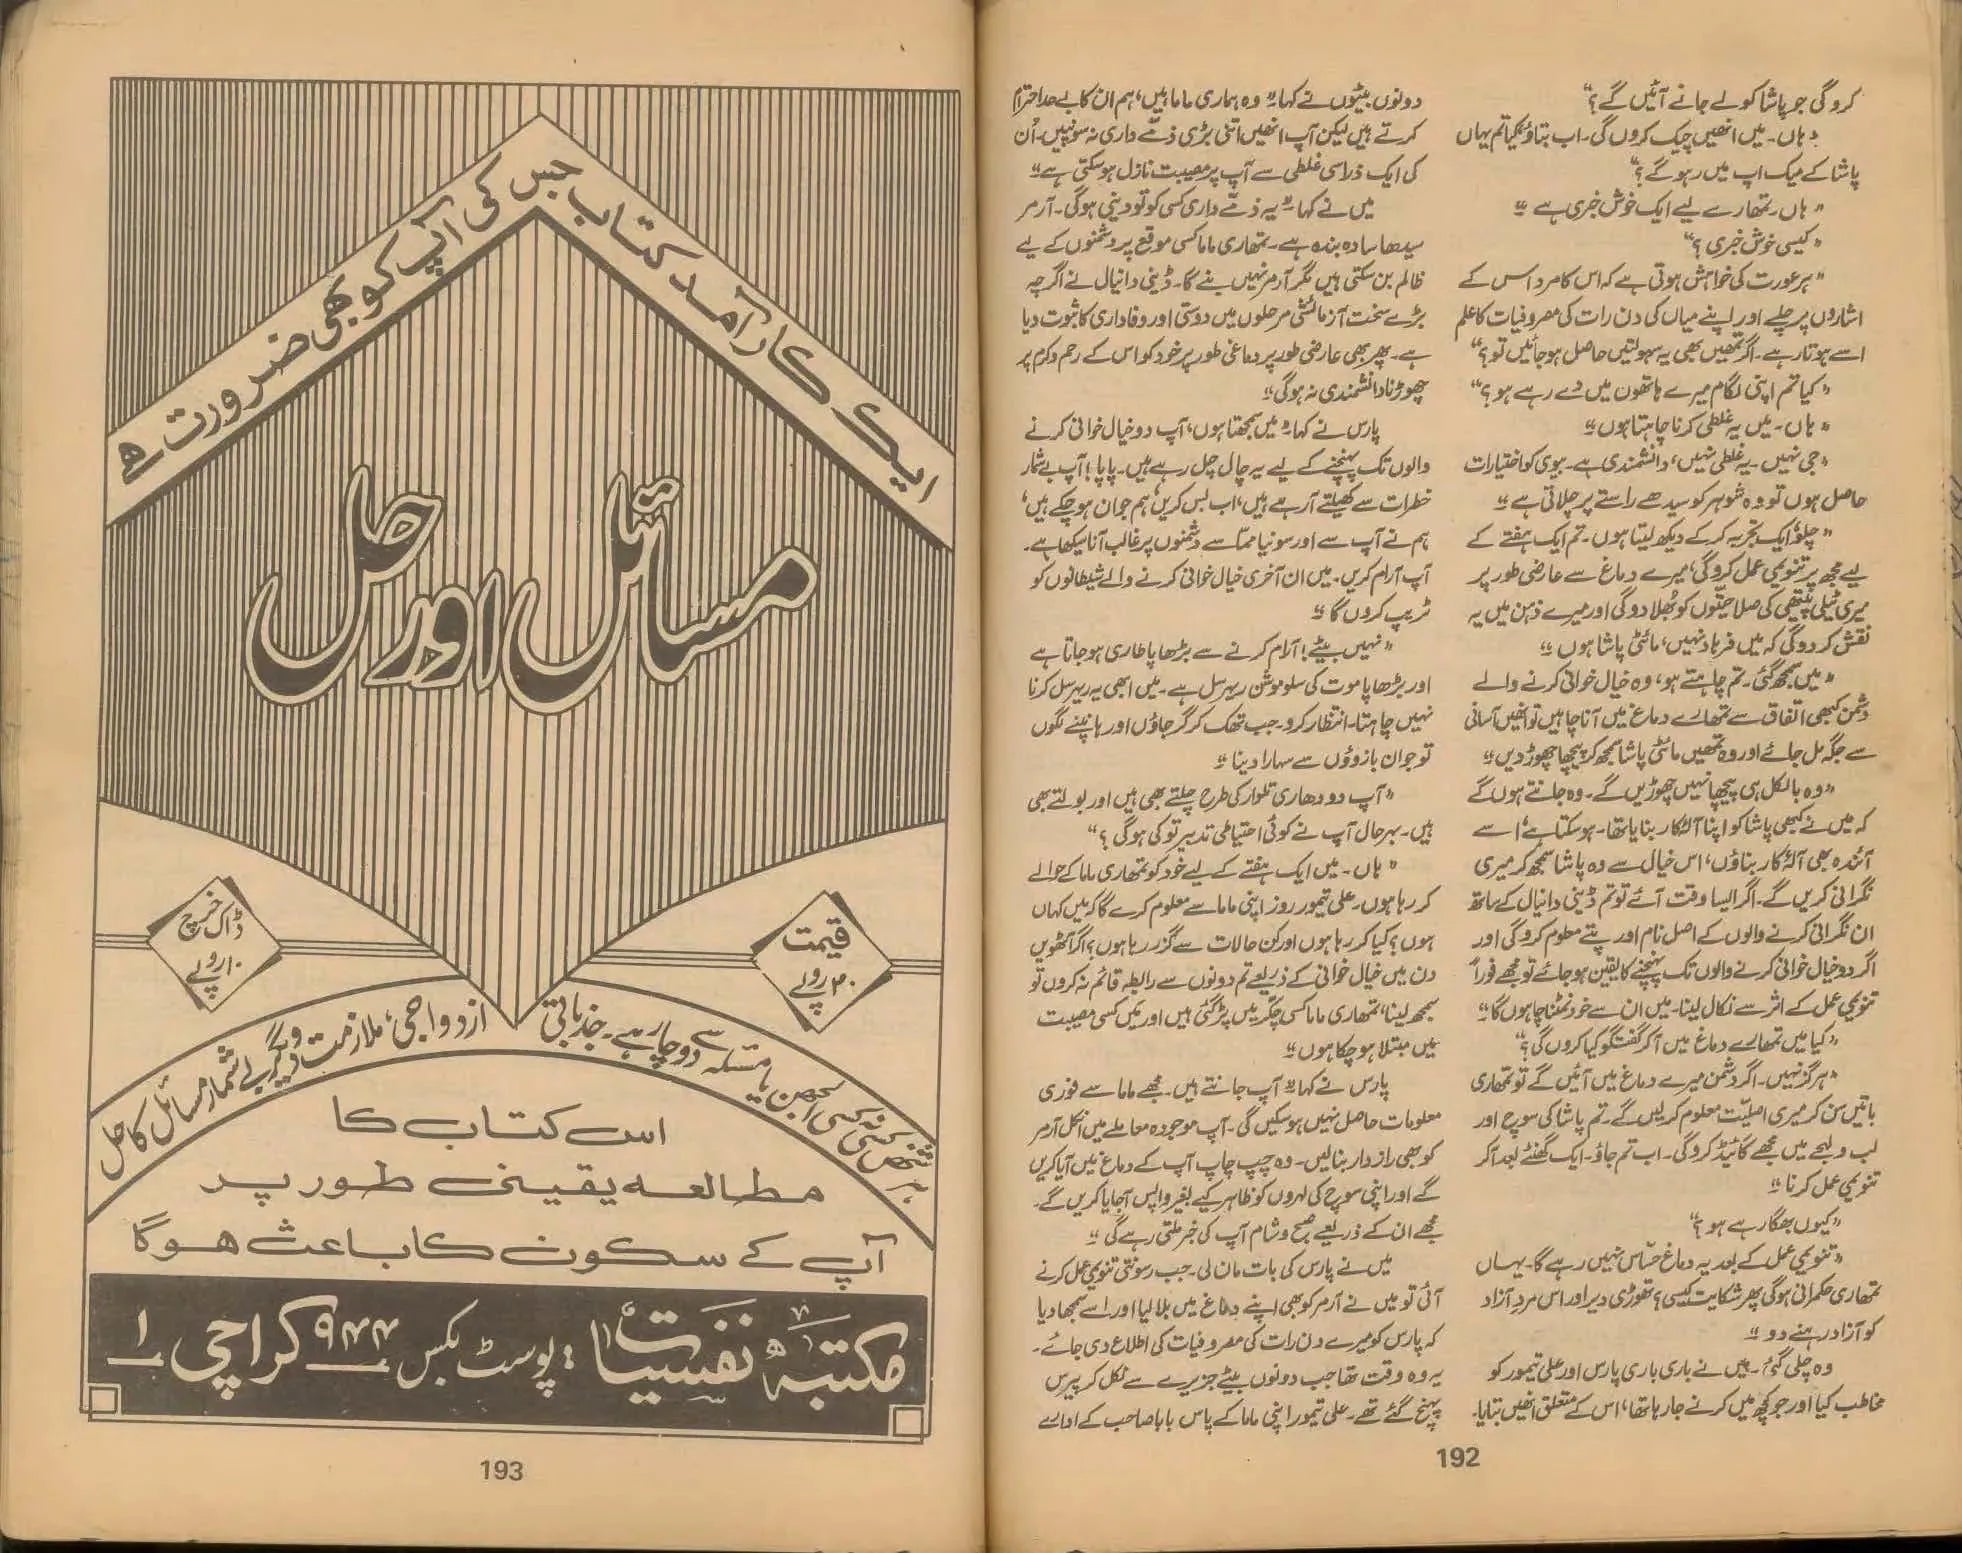 کروگی جو پاشا کو لے جانے آئیں گے؟"
"ہاں۔ میں انھیں چیک کروں گی۔ اب بتاؤ کیا تم یہاں
پاشا کے میک اپ میں رہو گے؟"
"ہاں تمھارے لیے ایک خوش خبری ہے۔"
"کیسی خوش خبری؟"
"ہر عورت کی خواہش ہوتی ہے کہ اس کا مرد اس کے
اشاروں پر چلے اور اپنے میاں کی دن رات کی مصروفیات کا علم
اسے ہوتا رہے۔ اگر تمھیں بھی یہ سہولتیں حاصل ہوجائیں تو؟"
"کیا تم اپنی لگام میرے ہاتھوں میں دے رہے ہو؟"
"ہاں۔ میں یہ غلطی کرنا چاہتا ہوں۔"
"جی نہیں۔ یہ غلطی نہیں، دانشمندی ہے۔ بیوی کو اختیارات
حاصل ہوں تو وہ شوہر کو سیدھے راستے پر چلاتی ہے۔"
"چلو، ایک تجربہ کرکے دیکھ لیتا ہوں۔ تم ایک ہفتے کے
لیے مجھ پر تنویمی عمل کروگی، میرے دماغ سے عارضی طور پر
میری ٹیلی پیتھی کی صلاحیتوں کو بھلا دوگی اور میرے ذہن میں یہ
نقش کردوگی کہ میں فرہاد نہیں، مائٹی پاشا ہوں۔"
"میں سمجھ گئی۔ تم چاہتے ہو، وہ خیال خوانی کرنے والے
دشمن کبھی اتفاق سے تمھارے دماغ میں آنا چاہیں تو انھیں آسانی
سے جگہ مل جائے اور وہ تمھیں مائٹی پاشا سمجھ کر پیچھا چھوڑ دیں۔"
"وہ بالکل ہی پیچھا نہیں چھوڑیں گے۔ وہ جانتے ہوں گے
کہ میں نے کبھی پاشا کو اپنا آلۂ کار بنایا تھا۔ ہوسکتا ہے، اسے
آئندہ بھی آلۂ کار بناؤں، اس خیال سے وہ پاشا سمجھ کر میری
نگرانی کریں گے۔ اگر ایسا وقت آئے تو تم ڈینی دانیال کے ساتھ
ان نگرانی کرنے والوں کے اصل نام اور پتے معلوم کروگی اور
اگر دو خیال خوانی کرنے والوں تک پہنچنے کا یقین ہوجائے تو مجھے فوراً
تنویمی عمل کے اثر سے نکال لینا۔ میں ان سے خود نمٹنا چاہوں گا۔"
"کیا میں تمھارے دماغ میں آکر گفتگو کیا کروں گی؟"
"ہرگز نہیں۔ اگر دشمن میرے دماغ میں آئیں گے تو تمھاری
باتیں سن کر میری اصلیت معلوم کرلیں گے۔ تم پاشا کی سوچ اور
لب و لہجے میں مجھے گائیڈ کروگی۔ اب تم جاؤ۔ ایک گھنٹے بعد آکر
تنویمی عمل کرنا۔"
"کیوں بھگا رہے ہو؟"
"تنویمی عمل کے بعد یہ دماغ حساس نہیں رہے گا۔ یہاں
تمھاری حکمرانی ہوگی پھر شکایت کیسی؟ تھوڑی دیر اور اس مردِ آزاد
کو آزاد رہنے دو۔"
وہ چلی گئی۔ میں نے باری باری پارس اور علی تیمور کو
مخاطب کیا اور جو کچھ میں کرنے جارہا تھا، اس کے متعلق انھیں بتایا۔
دونوں بیٹوں نے کہا "وہ ہماری ماما ہیں، ہم ان کا بے حد احترام
کرتے ہیں لیکن آپ انھیں اتنی بڑی ذمے داری نہ سونپیں۔ اُن
کی ایک ذرا سی غلطی سے آپ پر مصیبت نازل ہوسکتی ہے۔"
میں نے کہا "یہ ذمے داری کسی کو تو دینی ہوگی۔ آرمر
سیدھا سادہ بندہ ہے۔ تمھاری ماما کسی موقع پر دشمنوں کے لیے
ظالم بن سکتی ہیں مگر آرمر نہیں بنے گا۔ ڈینی دانیال نے اگرچہ
بڑے سخت آزمائشی مرحلوں میں دوستی اور وفاداری کا ثبوت دیا
ہے۔ پھر بھی عارضی طور پر دماغی طور پر خود کو اس کے رحم و کرم پر
چھوڑنا دانشمندی نہ ہوگی۔"
پارس نے کہا "میں سمجھتا ہوں، آپ دو خیال خوانی کرنے
والوں تک پہنچنے کے لیے یہ چال چل رہے ہیں۔ پاپا! آپ بے شمار
خطرات سے کھیلتے آرہے ہیں، اب بس کریں، ہم جوان ہوچکے ہیں،
ہم نے آپ سے اور سونیا ممّا سے دشمنوں پر غالب آنا سیکھا ہے۔
آپ آرام کریں۔ میں ان آخری خیال خوانی کرنے والے شیطانوں کو
ٹریپ کروں گا۔"
"نہیں بیٹے! آرام کرنے سے بڑھاپا طاری ہوجاتا ہے
اور بڑھاپا موت کی سلو موشن ریہرسل ہے۔ میں ابھی یہ ریہرسل کرنا
نہیں چاہتا۔ انتظار کرو۔ جب تھک کر گر جاؤں اور ہانپنے لگوں
تو جوان بازوؤں سے سہارا دینا۔"
"آپ دو دھاری تلوار کی طرح چلتے بھی ہیں اور بولتے بھی
ہیں۔ بہرحال آپ نے کوئی احتیاطی تدبیر تو کی ہوگی؟"
"ہاں۔ میں ایک ہفتے کے لیے خود کو تمھاری ماما کے حوالے
کررہا ہوں۔ علی تیمور روز اپنی ماما سے معلوم کرے گا کہ میں کہاں
ہوں؟ کیا کررہا ہوں اور کن حالات سے گزر رہا ہوں؟ اگر آٹھویں
دن میں خیال خوانی کے ذریعے تم دونوں سے رابطہ قائم نہ کروں تو
سمجھ لینا، تمھاری ماما کسی چکر میں پڑگئی ہیں اور میں کسی مصیبت
میں مبتلا ہوچکا ہوں۔"
پارس نے کہا "آپ جانتے ہیں۔ مجھے ماما سے فوری
معلومات حاصل نہیں ہوسکیں گی۔ آپ موجودہ معاملے میں انکل آرمر
کو بھی رازدار بنالیں۔ وہ چپ چاپ آپ کے دماغ میں آیا کریں
گے اور اپنی سوچ کی لہروں کو ظاہر کیے بغیر واپس آجایا کریں گے۔
مجھے ان کے ذریعے صبح و شام آپ کی خبر ملتی رہے گی۔"
میں نے پارس کی بات مان لی۔ جب رسونتی تنویمی عمل کرنے
آئی تو میں نے آرمر کو بھی اپنے دماغ میں بلالیا اور اسے سمجھا دیا
کہ پارس کو میرے دن رات کی مصروفیات کی اطلاع دی جائے۔
یہ وہ وقت تھا جب دونوں بیٹے جزیرے سے نکل کر پیرس
پہنچ گئے تھے۔ علی تیمور اپنی ماما کے پاس بابا صاحب کے ادارے
192
ایک کارآمد کتاب جس کی آپ کو بھی ضرورت ہے
مسائل اور حل
قیمت
۳۰ روپے
ڈاک خرچ
۱۰ روپے
ہر شخص کسی نہ کسی الجھن یا مسئلہ سے دوچار ہے۔ جذباتی
ازدواجی، ملازمت و دیگر بے شمار مسائل کا حل
اس کتاب کا
مطالعہ یقینی طور پر
آپ کے سکون کا باعث ہوگا
مکتبہ نفسیات: پوسٹ بکس ۹۴۴ کراچی ۱
193